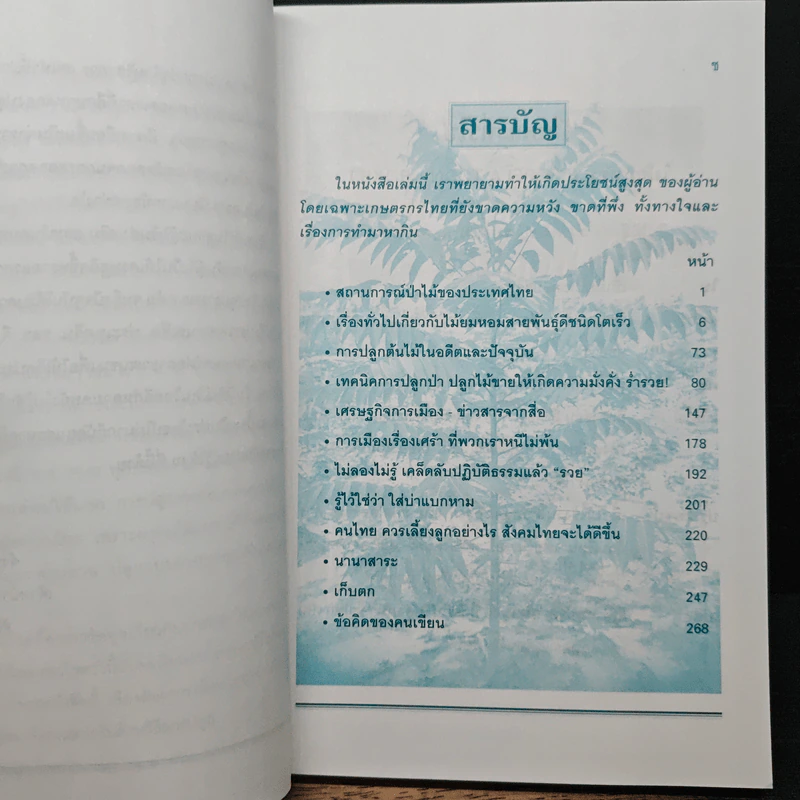 ช
สารบัญ
ในหนังสือเล่มนี้ เราพยายามทำให้เกิดประโยชน์สูงสุด ของผู้อ่าน
โดยเฉพาะเกษตรกรไทยที่ยังขาดความหวัง ขาดที่พึ่ง ทั้งทางใจและ
เรื่องการทำมาหากิน
หน้า
• สถานการณ์ป่าไม้ของประเทศไทย 1
• เรื่องทั่วไปเกี่ยวกับไม้ยมหอมสายพันธุ์ดีชนิดโตเร็ว 6
• การปลูกต้นไม้ในอดีตและปัจจุบัน 73
• เทคนิคการปลูกป่า ปลูกไม้ขายให้เกิดความมั่งคั่ง ร่ำรวย! 80
• เศรษฐกิจการเมือง - ข่าวสารจากสื่อ 147
• การเมืองเรื่องเศร้า ที่พวกเราหนีไม่พ้น 178
• ไม่ลองไม่รู้ เคล็ดลับปฏิบัติธรรมแล้ว “รวย” 192
• รู้ไว้ใช่ว่า ใส่บ่าแบกหาม 201
• คนไทย ควรเลี้ยงลูกอย่างไร สังคมไทยจะได้ดีขึ้น 220
• นานาสาระ 229
• เก็บตก 247
• ข้อคิดของคนเขียน 268